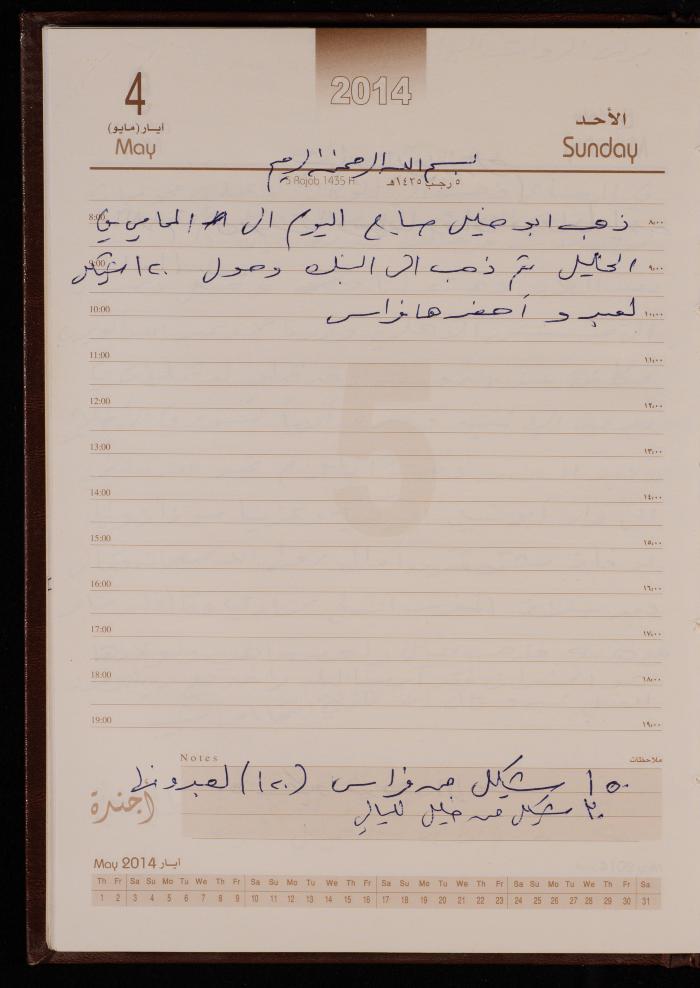 2014
4
ايار (مايو)
May
الأحد
Sunday
بسم الله الرحمن الرحيم
5 Rajab 1435 H
٥ رجب ١٤٣٥هـ
8:00 ذهب ابو خليل صباح اليوم الى المحامي في ٨:٠٠
9:00 الخليل ثم ذهب الى البنك وحول ١٢٠ شيكل ٩:٠٠
10:00 لعبد و أحضرها فراس ١٠:٠٠
11:00 ١١:٠٠
12:00 ١٢:٠٠
13:00 ١٣:٠٠
14:00 ١٤:٠٠
15:00 ١٥:٠٠
16:00 ١٦:٠٠
17:00 ١٧:٠٠
18:00 ١٨:٠٠
19:00 ١٩:٠٠
5
Notes ملاحظات
١٥٠ شيكل من فراس (١٢٠) لعبد
٣٠ شيكل من خليل
أجندة
May 2014 ايار
Th Fr Sa Su Mo Tu We Th Fr Sa Su Mo Tu We Th Fr Sa Su Mo Tu We Th Fr Sa Su Mo Tu We Th Fr Sa
1 2 3 4 5 6 7 8 9 10 11 12 13 14 15 16 17 18 19 20 21 22 23 24 25 26 27 28 29 30 31